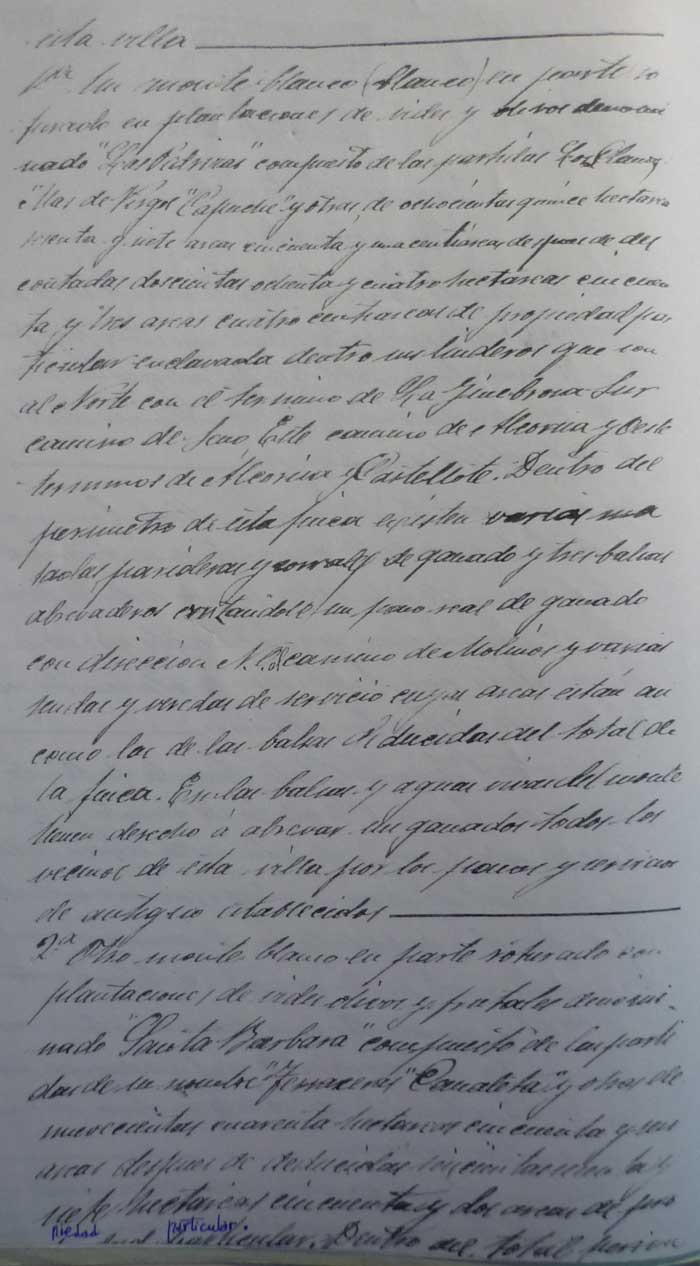 esta villa
1ª Un monte blanco (blanco) en parte ro
turado en plantaciones de vides y olivos denomi
nado "Las Valiras" compuesto de las partidas Los Llanos
"Mas de Pérez" "Capuche" y otras, de ochocientas quince hectareas
sesenta y siete areas cincuenta y una centiareas despues de des
contadas doscientas ochenta y cuatro hectareas cincuen
ta y tres areas cuatro centiareas de propiedad par
ticular enclavada dentro sus linderos que son
al Norte con el termino de La Ginebrosa Sur
camino de Seno Este camino de Alcorisa y Oeste
terminos de Alcorisa y Castellote. Dentro del
perimetro de esta finca existen varias ma
sadas parideras y corrales de ganado y tres balsas
abrevaderos cruzandole un paso real de ganado
con direccion N. camino de Molinos y varias
sendas y veredas de servicio cuyas areas están asi
como las de las balsas deducidas del total de
la finca. En las balsas y aguas vivas del monte
tienen derecho á abrevar sus ganados todos los
vecinos de esta villa por los pasos y servicios
de antiguo establecidos
2ª Otro monte blanco en parte roturado con
plantaciones de vides olivos y frutales denomi-
nado "Santa Barbara" compuesto de las parti
das de su nombre "Ferreres" "Canaleta" y otras de
novecientas cuarenta hectareas cincuenta y seis
areas despues de deducidas y
siete hectareas cincuenta y dos areas de pro
piedad particular.
particular. Dentro del total perim